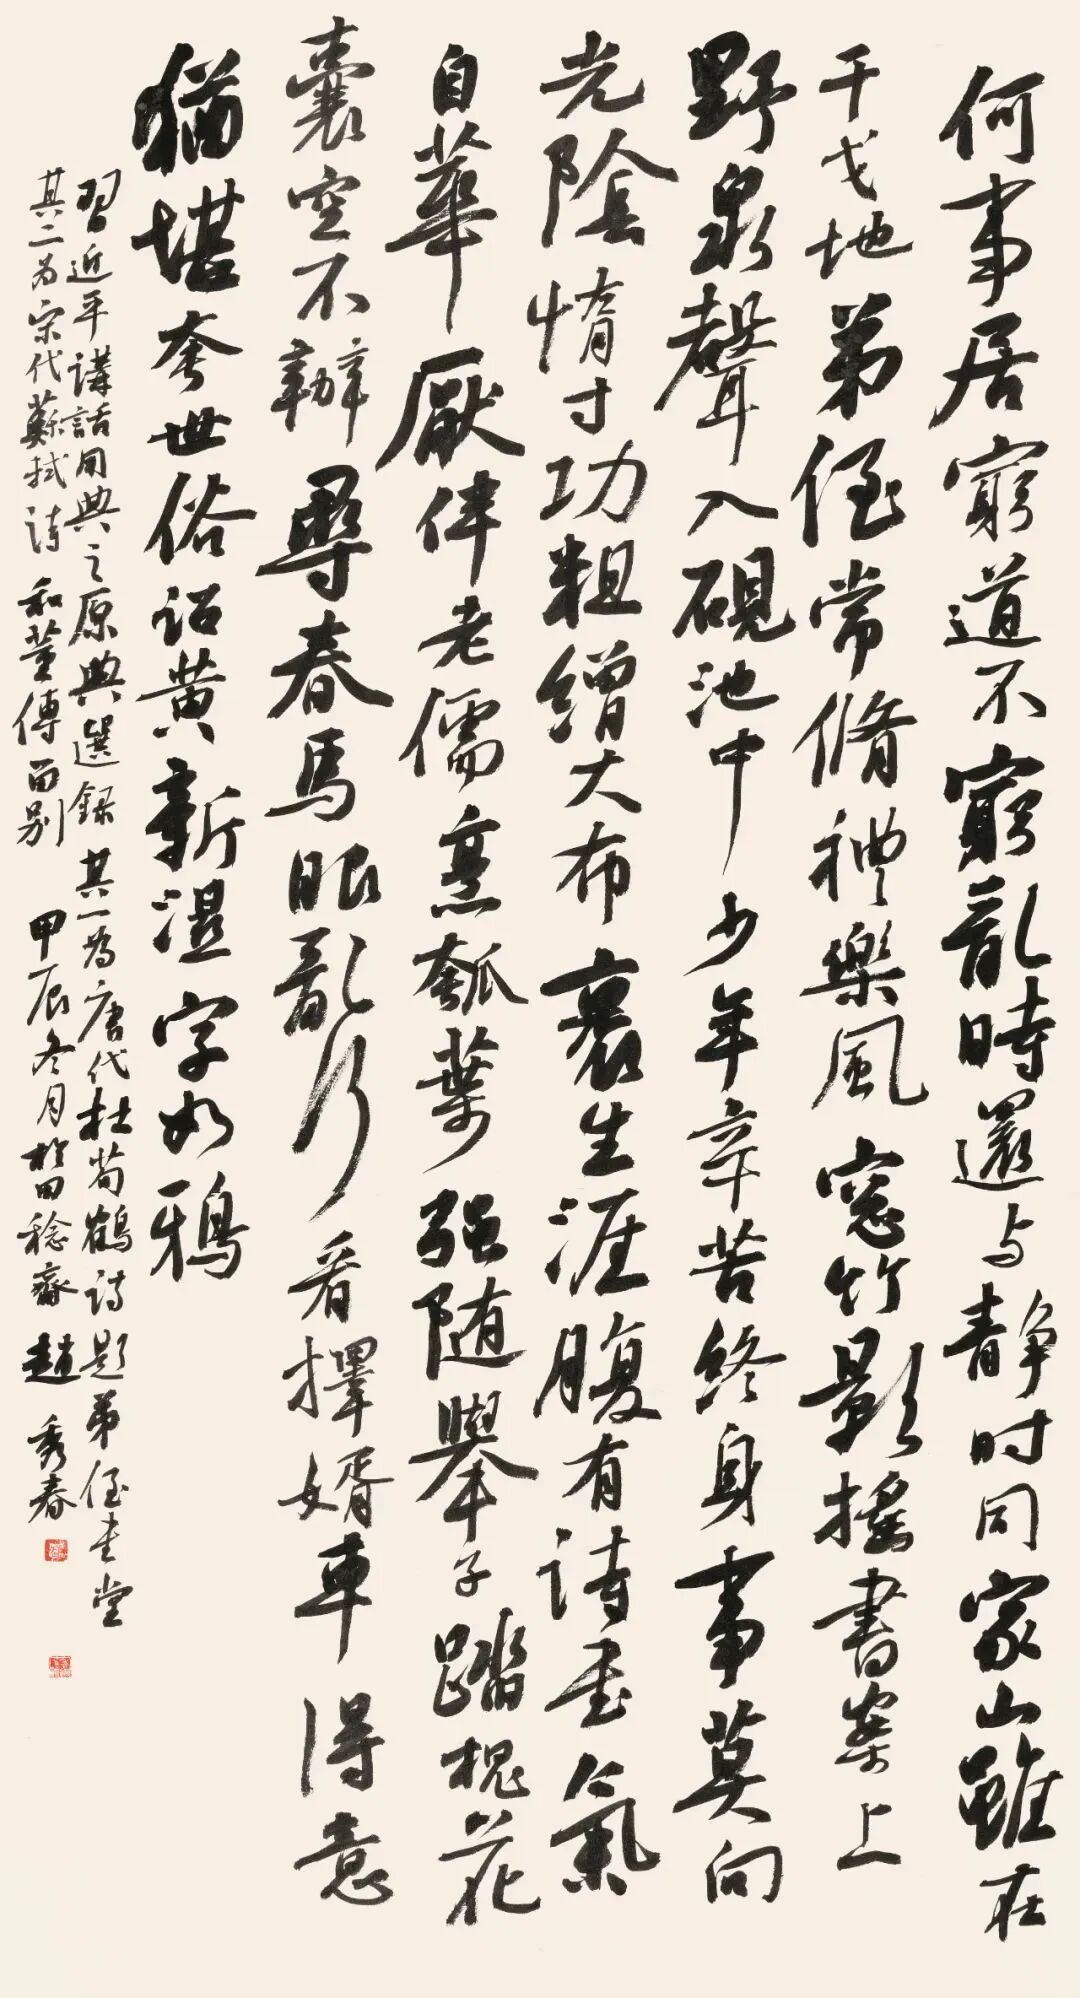 何事居窮道不窮亂時還与静时同家山雖在
干戈地弟侄常脩禮樂風窓竹影摇書案上
野泉聲入硯池中少年辛苦終身事莫向
光陰惰寸功粗繒大布裹生涯腹有詩書氣
自華厭伴老儒烹瓠葉强随舉子踏槐花
囊空不辦尋春馬眼亂行看擇婿車得意
猶堪夸世俗诏黄新濕字如鴉
習近平講話用典之原典選録其一為唐代杜荀鶴詩題弟侄书堂
其二为宋代蘇軾诗和董傳留别甲辰冬月於田稔齋趙秀春